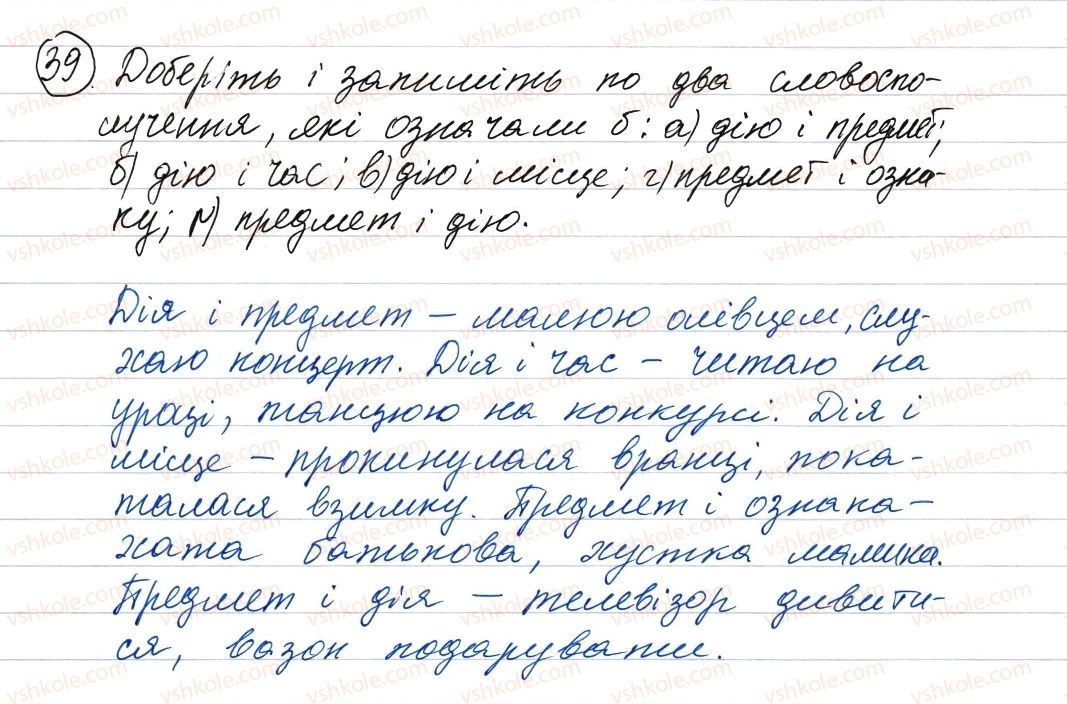 39. Доберіть і запишіть по два словоспо-
лучення, які означали б: а) дію і предмет;
б) дію і час; в) дію і місце; г) предмет і озна-
ку; ґ) предмет і дію.
Дія і предмет – малюю олівцем, слу-
хаю концерт. Дія і час – читаю на
уроці, танцюю на конкурсі. Дія і
місце – прокинулася вранці, пока-
талася взимку. Предмет і ознака –
хата батькова, хустка мамина.
Предмет і дія – телевізор дивити-
ся, вазон подарувати.